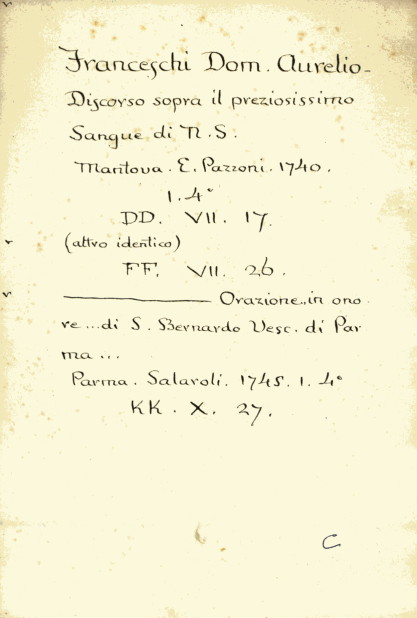 Franceschi Dom. Aurelio-
Discorso sopra il preziosissimo
Sangue di N. S.
Mantova. E. Pazzoni. 1740.
1. 4°
DD. VII. 17.
(altro identico)
FF. VII. 26.
———— Orazione..in ono
re...di S. Bernardo Vesc. di Par
ma...
Parma. Salaroli. 1745. 1. 4°
KK. X. 27.
C